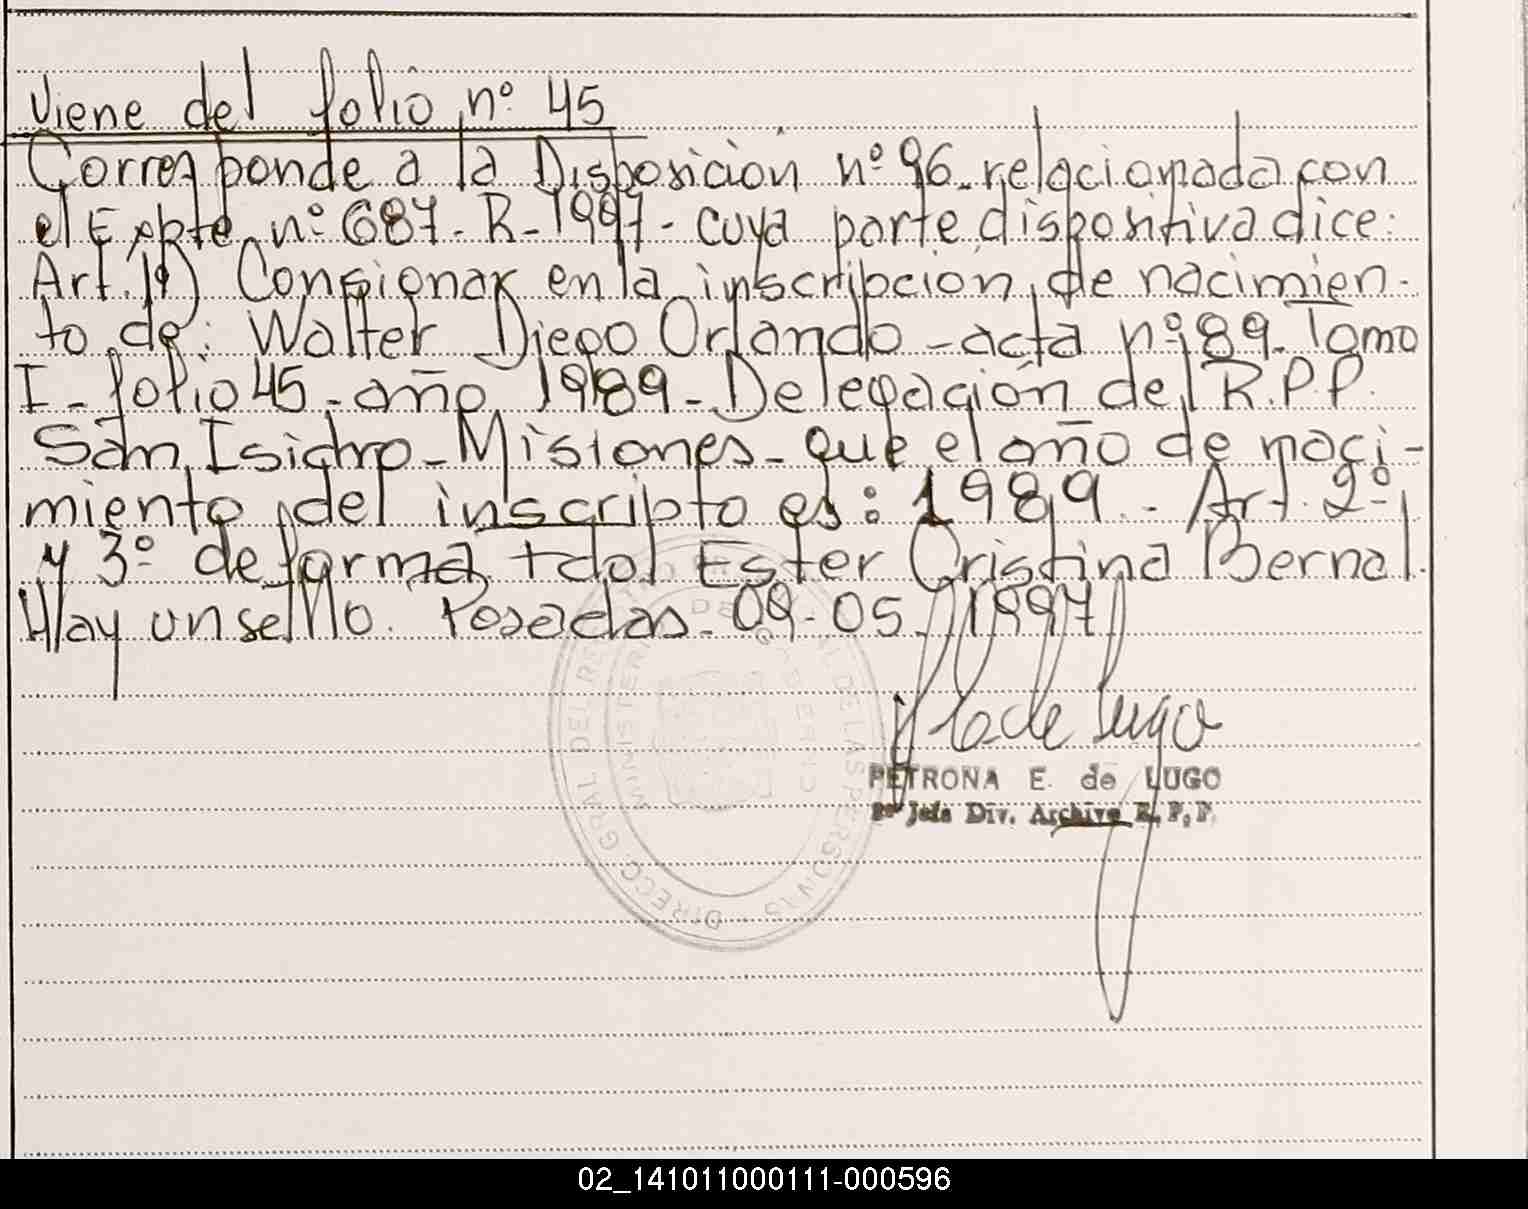 Viene del folio nº 45
Corresponde a la Disposición nº 96. relacionada con
el Expte. nº 687-R-1997- cuya parte dispositiva dice:
Art. 1º) Consignar en la inscripción de nacimien-
to de: Walter Diego Orlando - acta nº 89. Tomo
I - folio 45 - año 1989 - Delegación del R.P.P.
San Isidro - Misiones - que el año de naci-
miento del inscripto es: 1989.- Art. 2º
y 3º de forma fdo Ester Cristina Bernal.
Hay un sello. Posadas. 09-05-1997
PETRONA E. de LUGO
Jefe Div. Archivo R. P. P.
DIRECC GRAL DEL REGISTRO PROVINCIAL DE LAS PERSONAS
MINISTERIO DE GOBIERNO
02_141011000111-000596